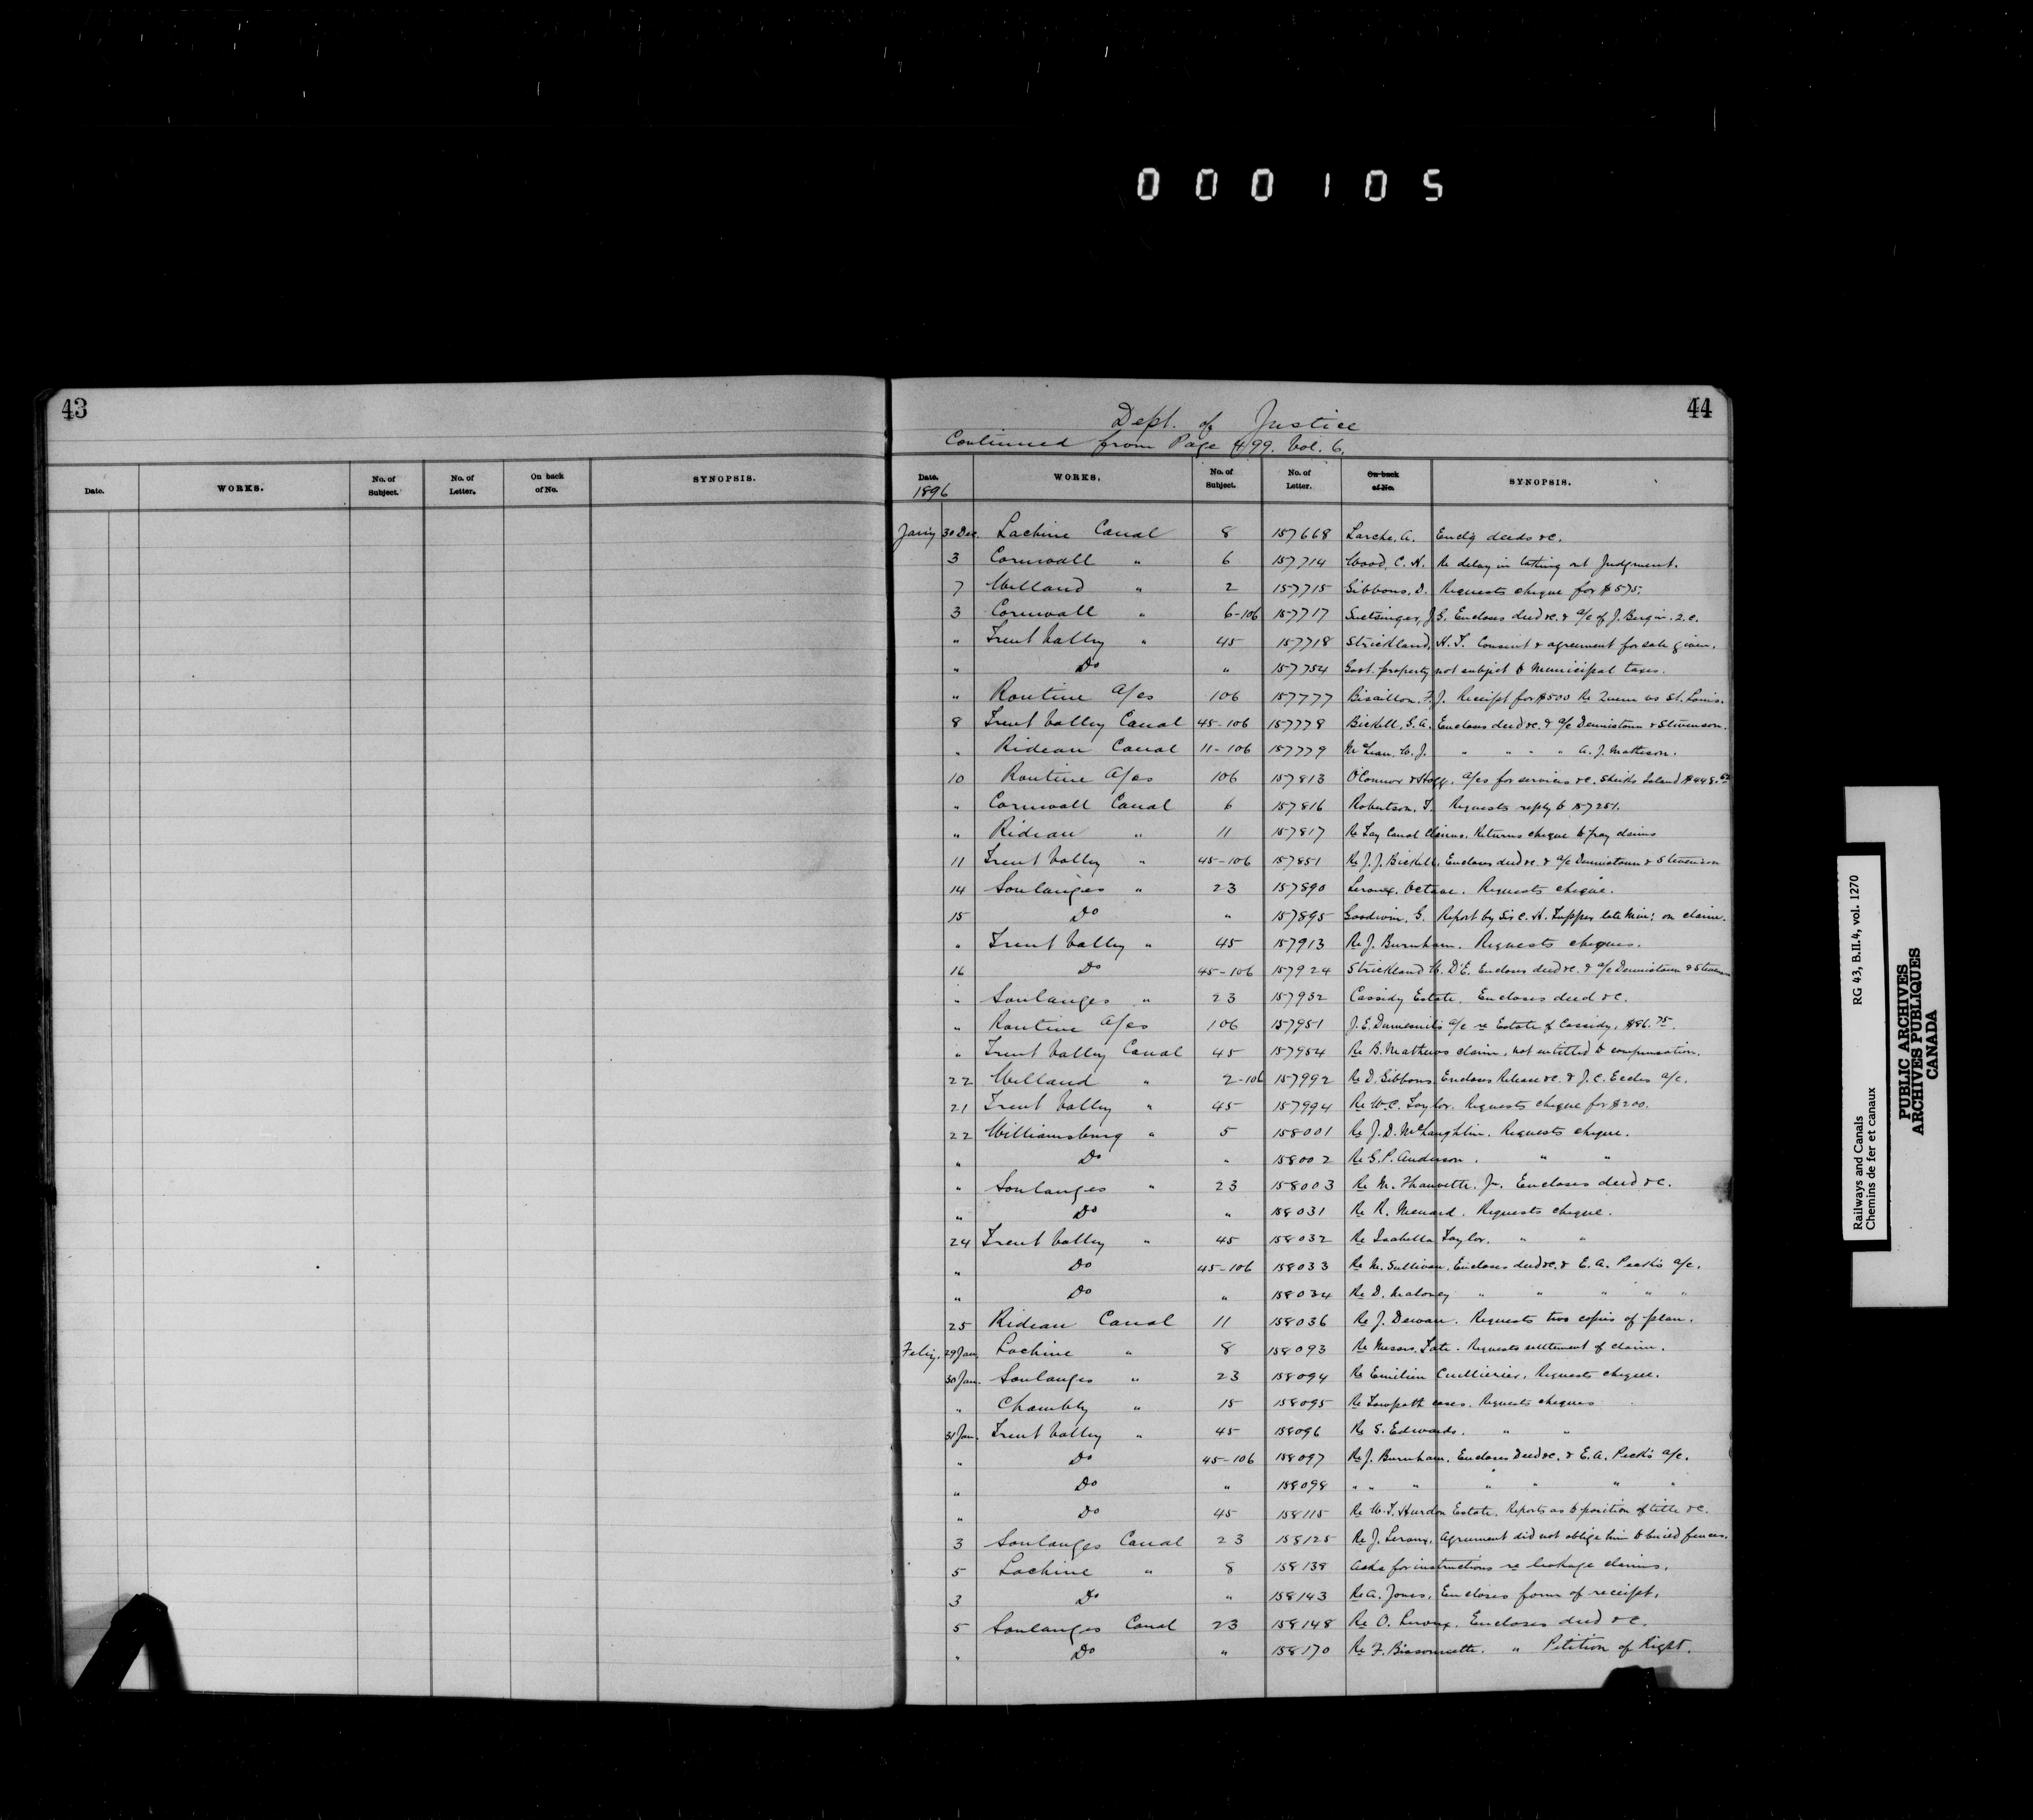 000105
43
Date. WORKS. No. of Subject. No. of Letter. On back of No. SYNOPSIS.
44
Dept. of Justice
Continued from Page 499. Vol. 6.
Date. WORKS. No. of Subject. No. of Letter. On back of No. SYNOPSIS.
1896
Jany 30 Dec. Lachine Canal 8 157668 Larche, A. Enclg deeds &c.
3 Cornwall " 6 157714 Wood, C. H. Re delay in taking out Judgment.
7 Welland " 2 157715 Gibbons, D. Requests cheque for $575.
3 Cornwall " 6-106 157717 Snetsinger, J. G. Encloses deed &c. & a/c of J. Bergin. Q.C.
" Trent Valley " 45 157718 Strickland, H. T. Consent & agreement for sale given.
" Do " 157754 Govt. property not subject to Municipal taxes.
" Routine A/cs 106 157777 Bisaillon, F. J. Receipt for $500 Re Queen vs St. Louis.
8 Trent Valley Canal 45-106 157778 Bickell, G. A. Encloses deed &c. & a/c Dennistoun & Stevenson.
" Rideau Canal 11-106 157779 McLean, W. J. " " " " A. J. Matheson.
10 Routine A/cs 106 157813 O'Connor & Hogg. a/cs for services &c. Sheiks Island $448.
" Cornwall Canal 6 157816 Robertson, T. Requests reply to 157251.
" Rideau " 11 157817 Re Tay Canal Claims. Returns cheque to pay claims
11 Trent Valley " 45-106 157851 Re J. J. Bickell, Encloses deed &c. & a/c Dennistoun & Stevenson
14 Soulanges " 23 157890 Leroux, Octave. Requests cheque.
15 Do " 157895 Goodwin, G. Report by Sir C. H. Tupper late Min: on claim.
" Trent Valley " 45 157913 Re J. Burnham. Requests cheques.
16 Do 45-106 157924 Strickland W. D'E. Encloses deed &c. & a/c Dennistoun & Stevenson
" Soulanges " 23 157932 Cassidy Estate. Encloses deed &c.
" Routine A/cs 106 157951 J. E. Dumesnil's a/c re Estate of Cassidy, $86.75.
" Trent Valley Canal 45 157954 Re B. Mathews claim, not entitled to compensation.
22 Welland " 2-106 157992 Re D. Gibbons. Encloses Release &c. & J. C. Eccles a/c.
21 Trent Valley " 45 157994 Re W. C. Taylor. Requests cheque for $200.
22 Williamsburg " 5 158001 Re J. D. McLaughlin. Requests cheque.
" Do " 158002 Re G. P. Anderson. " "
" Soulanges " 23 158003 Re M. Thauvette, Jr. Encloses deed &c.
" Do " 158031 Re R. Menard. Requests cheque.
24 Trent Valley " 45 158032 Re Isabella Taylor. " "
" Do 45-106 158033 Re M. Sullivan. Encloses deed &c. & E. A. Peck's a/c.
" Do " 158034 Re D. Maloney " " " " "
25 Rideau Canal 11 158036 Re J. Dewan. Requests two copies of plan.
Feby. 29 Jan. Lachine " 8 158093 Re Messrs. Tate. Requests settlement of claim.
30 Jan. Soulanges " 23 158094 Re Emilien Cuillierier. Requests cheque.
" Chambly " 15 158095 Re Towpath cases. Requests cheques
31 Jan. Trent Valley " 45 158096 Re S. Edwards. " "
" Do 45-106 158097 Re J. Burnham. Encloses Deed &c. & E. A. Peck's a/c.
" Do " 158098 " " " " " " "
" Do 45 158115 Re W. T. Hurdon Estate. Reports as to position of title &c.
3 Soulanges Canal 23 158125 Re J. Leroux, Agreement did not oblige him to build fences.
5 Lachine " 8 158138 Asks for instructions re leakage claims.
3 Do " 158143 Re A. Jones, Encloses form of receipt.
5 Soulanges Canal 23 158148 Re O. Leroux. Encloses deed &c.
" Do " 158170 Re F. Bissonnette. " Petition of Right.
Railways and Canals RG 43, B.II.4, vol. 1270
Chemins de fer et canaux
PUBLIC ARCHIVES
ARCHIVES PUBLIQUES
CANADA